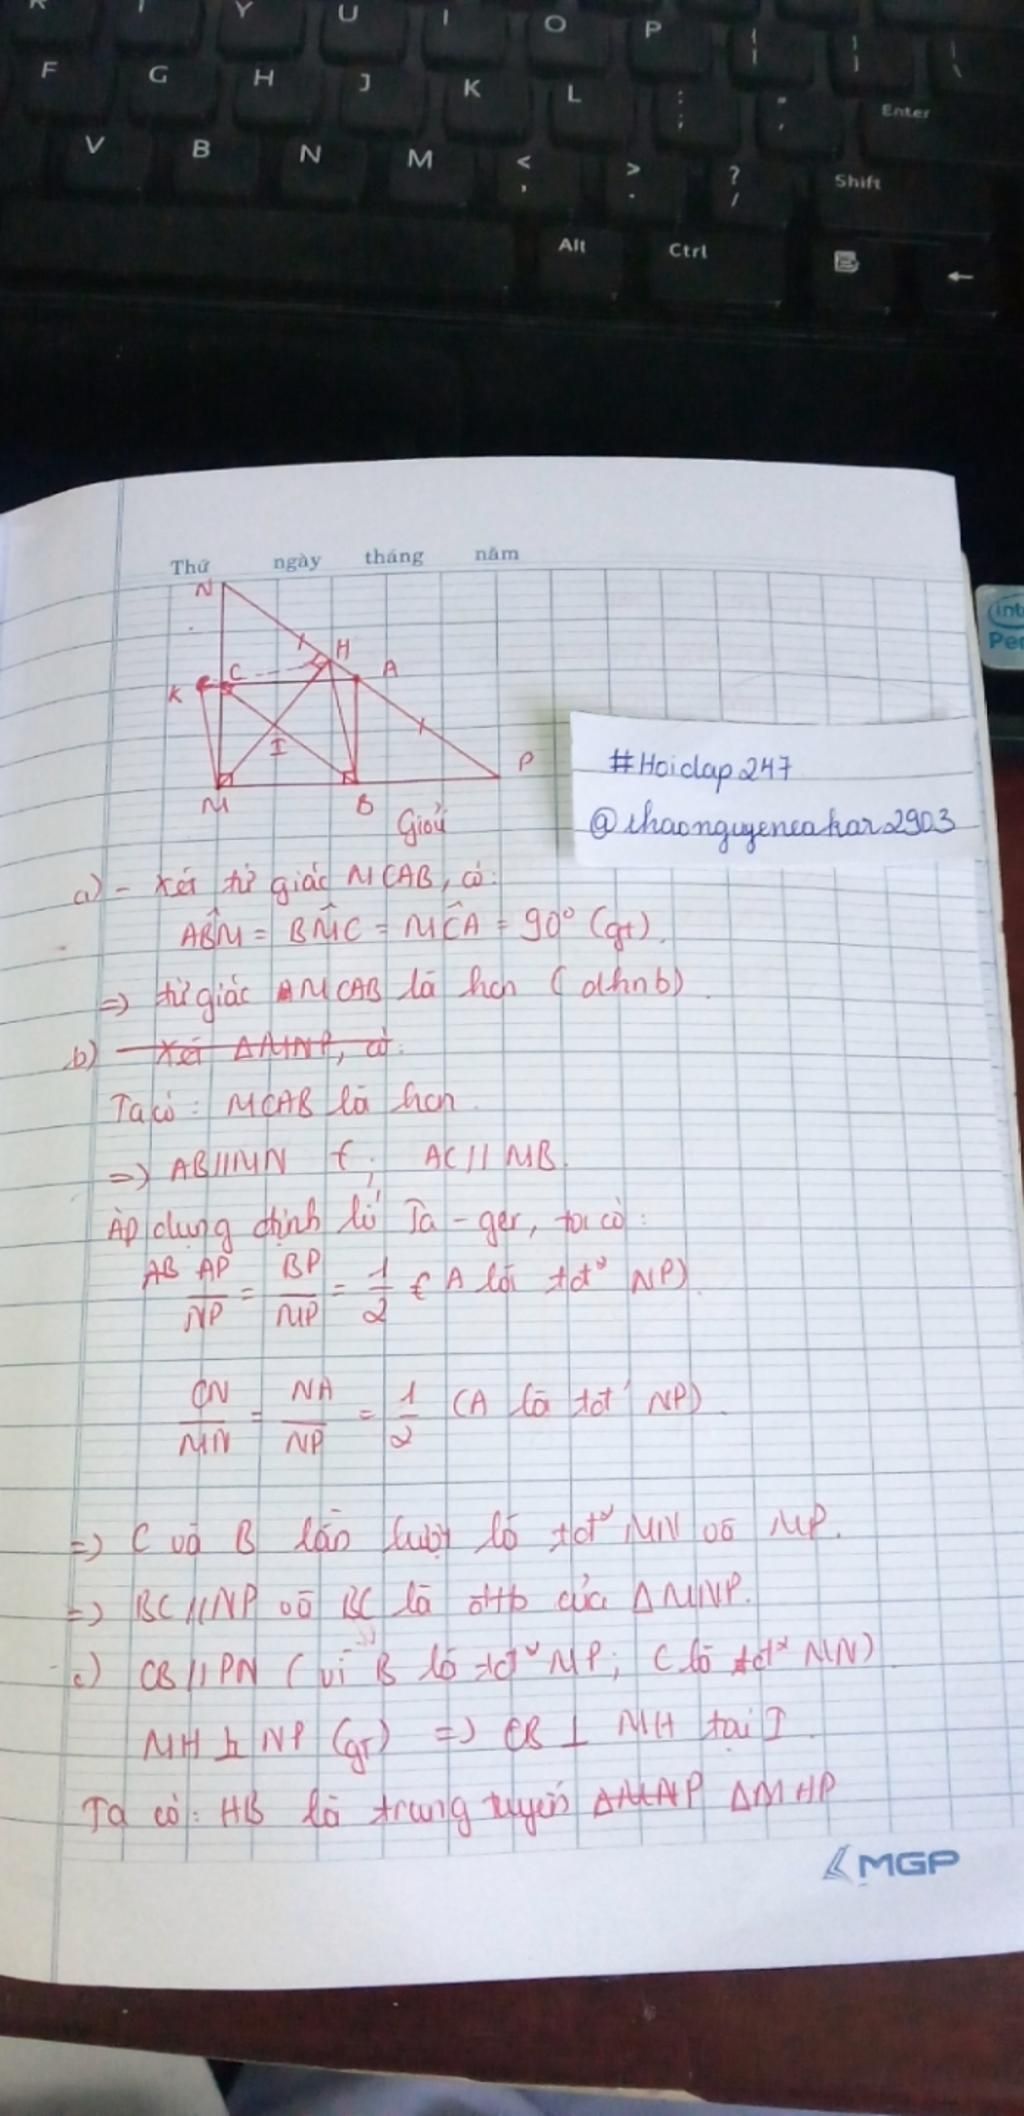 Y U I O P
F G H J K L : ; " ' Enter
V B N M < , > . ? / Shift
Alt Ctrl
Thứ ngày tháng năm
N
H
K C A
I
P
M B
Giải
#Hoidap247
@thaonguyeneahar2903
a) - Xét tứ giác MCAB, có:
AB̂M = BM̂C = MĈA = 90° (gt).
=> tứ giác MCAB là hcn (dhnb).
b) Xét ΔMNP, có:
Ta có: MCAB là hcn.
=> AB//MN ; AC // MB.
Áp dụng định lí Ta-get, ta có:
AB AP/NP = BP/MP = 1/2 ( A là tđ NP).
CN/MN = NA/NP = 1/2 (A là tđ NP).
=> C và B lần lượt là tđ MN và MP.
=> BC//NP và BC là đtb của ΔMNP.
c) CB//PN (vì B là tđ MP; C là tđ MN)
MH ⊥ NP (gt) => CB ⊥ MH tại I.
Ta có: HB là trung tuyến ΔMNP ΔMHP
MGP